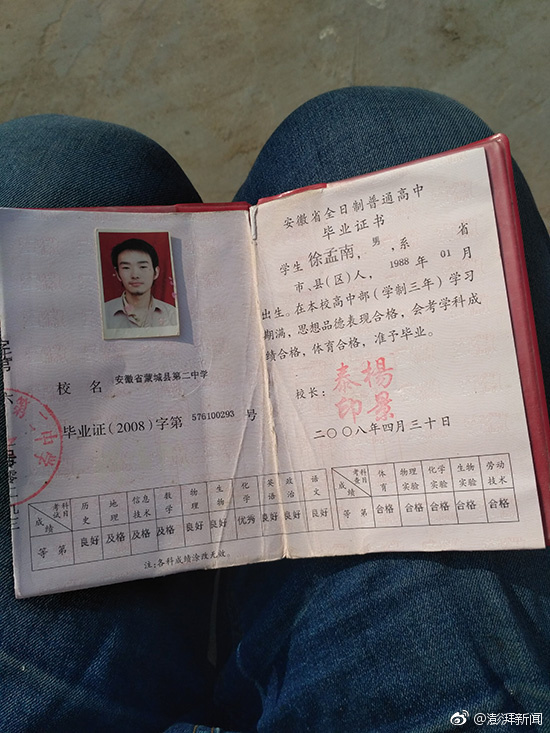 校 名 安徽省蒙城县第二中学
毕业证(2008)字第 576100293 号
考试科目 历史 地理 信息技术 数学 物理 生物 化学 英语 政治 语文
成绩
等 第 良好 及格 及格 及格 良好 良好 优秀 良好 良好 良好
注:各科成绩涂改无效。
安徽省全日制普通高中
毕业证书
学生 徐孟南,男,系 省
市、县(区)人, 1988 年 01 月
出生。在本校高中部(学制三年)学习
期满,思想品德表现合格,会考学科成
绩合格,体育合格,准予毕业。
校长: 杨景泰印
二〇〇八年四月三十日
考查科目 体育 物理实验 化学实验 生物实验 劳动技术
成绩
等 第 合格 合格 合格 合格 合格
@澎湃新闻